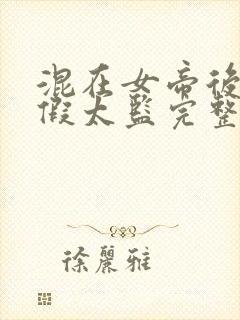 混在女帝後
假太監完整
徐麗雅